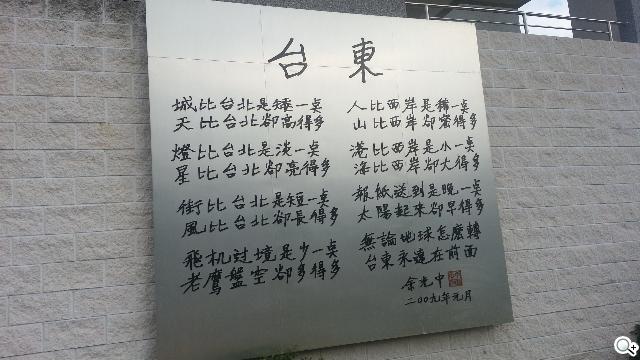 台東
城比台北是矮一点
天比台北卻高得多
燈比台北是淡一点
星比台北卻亮得多
街比台北是短一点
風比台北卻長得多
飛机过境是少一点
老鷹盤空卻多得多
人比西岸是稀一点
山比西岸卻密得多
港比西岸是小一点
海比西岸卻大得多
報紙送到是晚一点
太陽起來卻早得多
無論地球怎麼轉
台東永遠在前面
余光中
二00九年元月